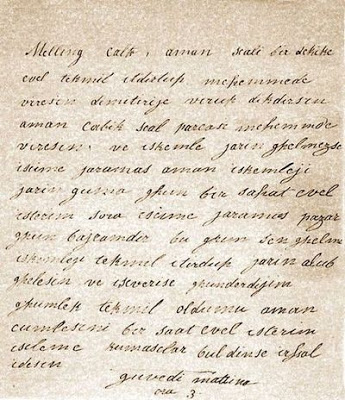 Melling Calfa, aman scali bir dakika
evel tekmil itdirup mehemmede
viresen dimitrije verup dikdirsen
aman Cabik scal parcase mehemmede
viresen. ve iskemle jarin ghelmezse
iscime jaramas aman iskemleji
jarin guma ghun bir sahat evel
isterim sora iscime jaramas pazar
ghun bajramder bu ghun sen ghelme
iskemleji tekmil itirdup jarin alub
ghelesen ve isverise ghunderdijim
ghumlek tekmil oldumu aman
cumlesini ber saat evel isterim
isleme kumasclar buldinse irssal
idesen
giovedi mattina
ora 3.